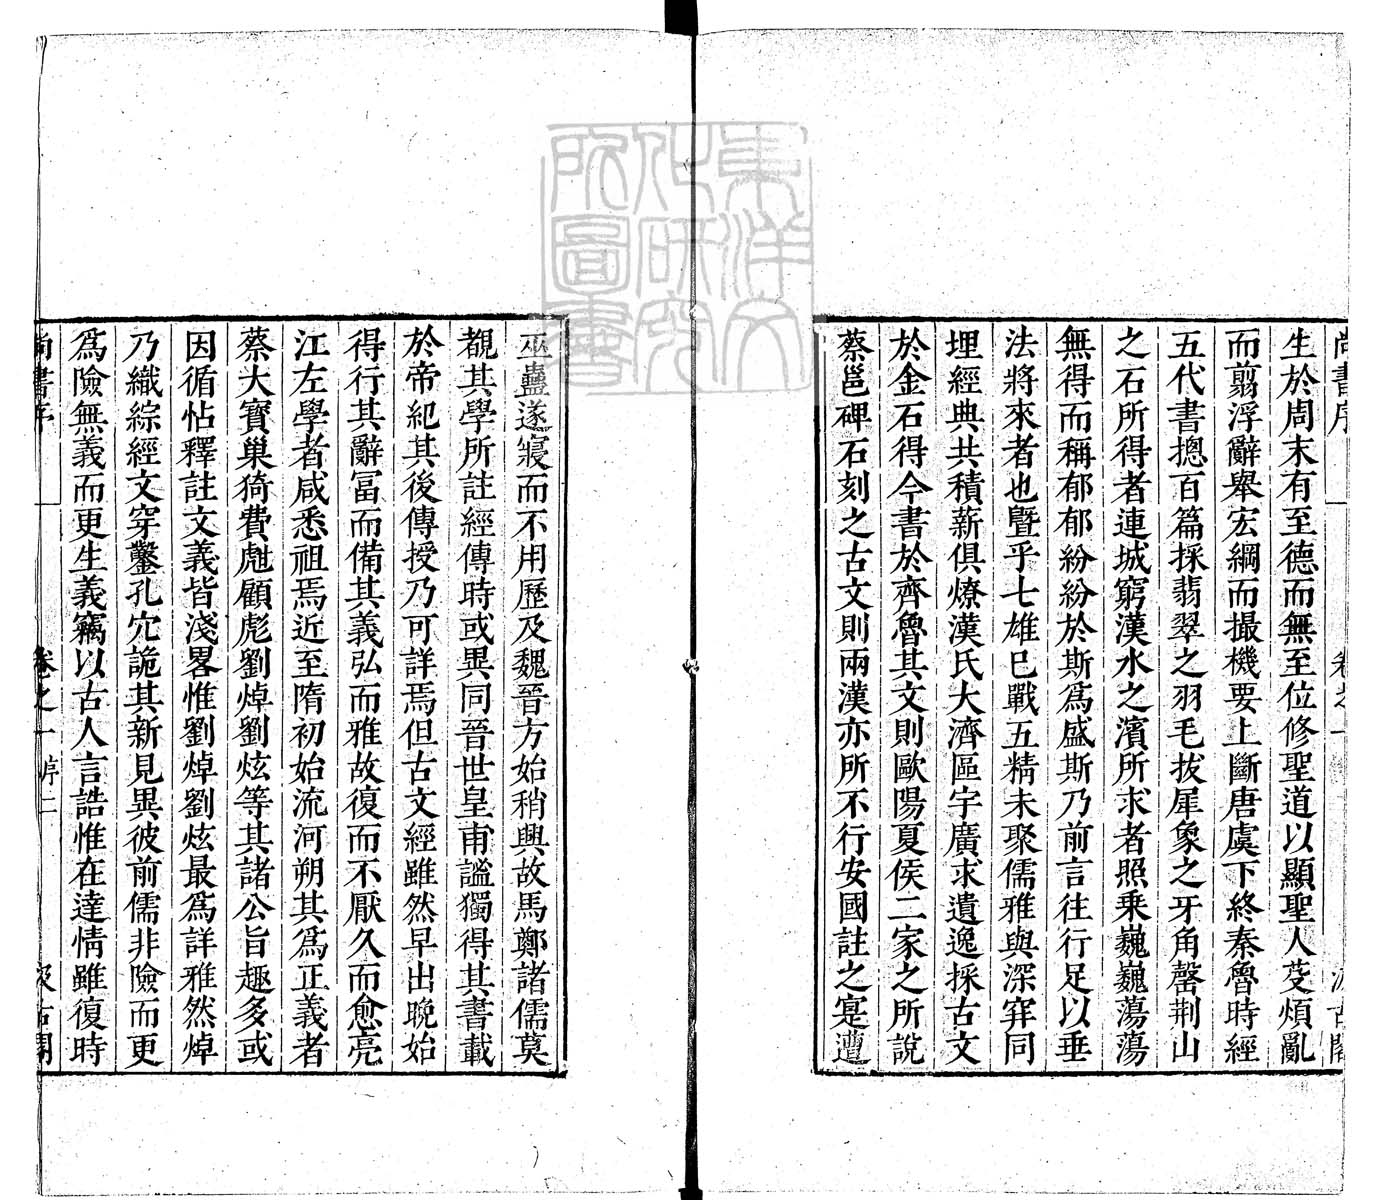 尚書序 一 卷之一 汲古閣
生於周末有至德而無至位修聖道以顯聖人芟煩亂
而翦浮辭舉宏綱而撮機要上斷唐虞下終秦魯時經
五代書摠百篇採翡翠之羽毛拔犀象之牙角罄荆山
之石所得者連城窮漢水之濱所求者照乗巍巍蕩蕩
無得而稱郁郁紛紛於斯爲盛斯乃前言往行足以垂
法將來者也曁乎七雄巳戰五精未聚儒雅與深穽同
埋經典共積薪俱燎漢氏大濟區宇廣求遺逸採古文
於金石得今書於齊魯其文則歐陽夏侯二家之所說
蔡邕碑石刻之古文則兩漢亦所不行安國註之寔遭
巫蠱遂寢而不用歷及魏晉方始稍興故馬鄭諸儒莫
覩其學所註經傳時或異同晉世皇甫謐獨得其書載
於帝紀其後傳授乃可詳焉但古文經雖然早出晚始
得行其辭冨而備其義弘而雅故復而不厭久而愈亮
江左學者咸悉祖焉近至隋初始流河朔其爲正義者
蔡大寶巢猗費甝顧彪劉焯劉炫等其諸公旨趣多或
因循帖釋註文義皆淺畧惟劉焯劉炫最爲詳雅然焯
乃織綜經文穿鑿孔穴詭其新見異彼前儒非險而更
爲險無義而更生義竊以古人言誥惟在達情雖復時
尚書序 一 卷之一 序二 汲古閣
東洋文
化研究
所圖書